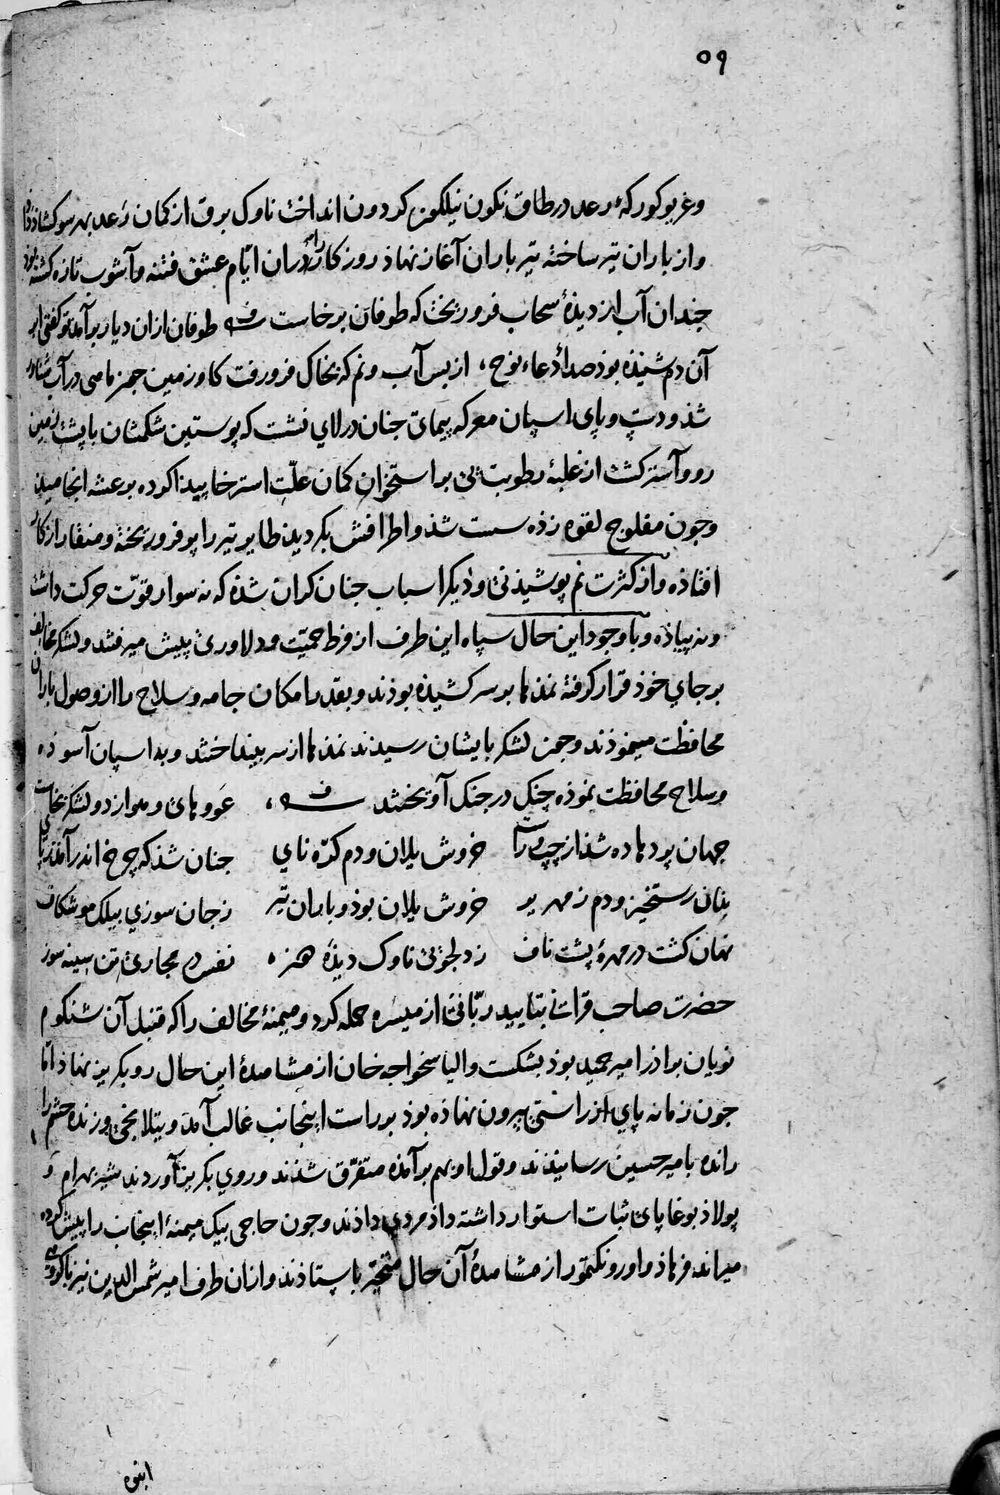 ٥٩
وغریو کورکهٔ رعد در طاق نکون نیلکون کردون انداخت ناوک برق از کمان رعد بهر سو کشاد
واز باران تیر ساخته تیرباران آغاز نهاذ روزکار را دران ایّام عشق فتنه وآشوب تازه کشته بوذ
جندان آب از دیدهٔ سحاب فرو ریخت که طوفان برخاست طوفان ازان دیار برآمد تو کفتی ابر
آن دم شنیذه بوذ صداء دعاء نوح، از بس آب ونم که بخاک فرو رفت کاو زمین جمز ماهی در آب شناور
شذ ودست وپای اسپان معرکه پیمای جنان در لای نشست که پوستین شکمشان با پشت زمین
رو وآستر کشت از غلبهٔ رطوبت پی بر استخوان کمان علّت استرخا پیدا کرده برعشه انجامید
وجون مفلوج لقوه زذه سست شذ واطرافش بکردید طایر تیر را پر فرو ریخته ومنقار از کار
افتاذه واز کثرت نم پوشیدنی ودیکر اسباب جنان کران شذه که نه سوار قوّت حرکت داشت
ونه پیاذه وباوجود این حال سپاه این طرف از فرط حمیّت ودلاوری پیش میرفتند ولشکر مخالف
بر جای خوذ قرار کرفته نمدها بر سر کشیذه بوذند وبقدر امکان جامه وسلاح را از وصول باران
محافظت مینموذند وجون لشکر بایشان رسیدند نمدها از سر بینداختند وبه اسپان آسوذه
وسلاح محافظت نموذه جنک در جنک آویختند غو وهای وهو از دو لشکر بخاست
جهان پر دهاده شذ از چپ وراست خروش یلان ودم کرّه نای جنان شذ که چرخ اندر آمد زپای
بنان رستخیز ودم زمهریر خروش یلان بوذ وباران تیر زجان سوزی بیلک موشکاف
نهان کشت در مهرهٔ پشت ناف زدلجوئی ناوک دیذه نفس در مجاری تن سینه سوز
حضرت صاحب قران بتایید ربّانی از میسره حمله کرد ومیمنهٔ مخالف را که قنبل آن شنکوم
نویان برادر امیر حمید بوذ بشکست والیاس خواجه خان از مشاهدهٔ این حال رو بکریز نهاذ امّا
جون زمانه پای از راستی بیرون نهاذه بوذ بر راست اینجانب غالب آمد وبتلانجی وزنده حشم را
رانده بامیر حسین رسانیدند وقول او بهم برآمده متفرّق شدند وروی بکریز آوردند شیر بهرام و
پولاذ بوغا پای ثبات استوار داشته داذ مردی داذند وجون حاجی بیک میمنهٔ اینجانب را پیش کرده
میراند فرهاذ واورونکتمور از مشاهدهٔ آن حال متحیّر باستاذند وازان طرف امیر شمس الدین نیز با کروهی
انبوه